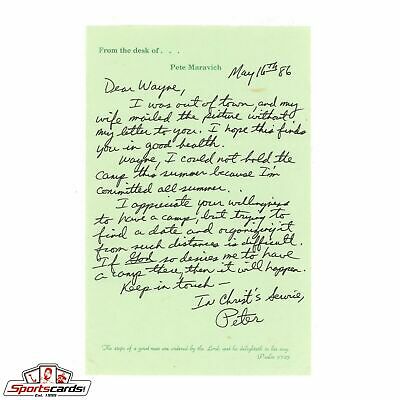 From the desk of . . .
Pete Maravich
May 16TH 86
Dear Wayne,
I was out of town, and my
wife mailed the picture without
my letter to you. I hope this finds
you in good health.
Wayne, I could not hold the
camp this summer because I'm
committed all summer. .
I appreciate your willingness
to have a camp, but trying to
find a date and organizing it
from such distances is difficult.
If God so desires me to have
a camp there, then it will happen.
Keep in touch —
In Christ's Service,
Peter
The steps of a good man are ordered by the Lord: and he delighteth in his way.
(Psalm 37:23)
Sportscards!
Est. 1999